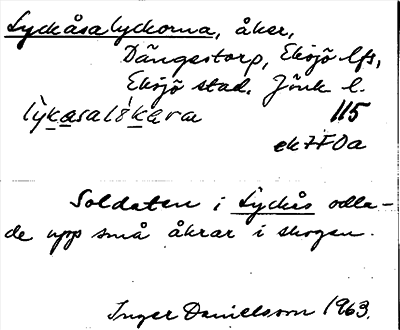 Lyckåsalyckorna, åker,
Dängestorp, Eksjö lfs,
Eksjö stad. Jönk l.
115
ek 7F0a
Soldaten i Lyckås odla-
de upp små åkrar i skogen.
Inger Danielsson 1963.